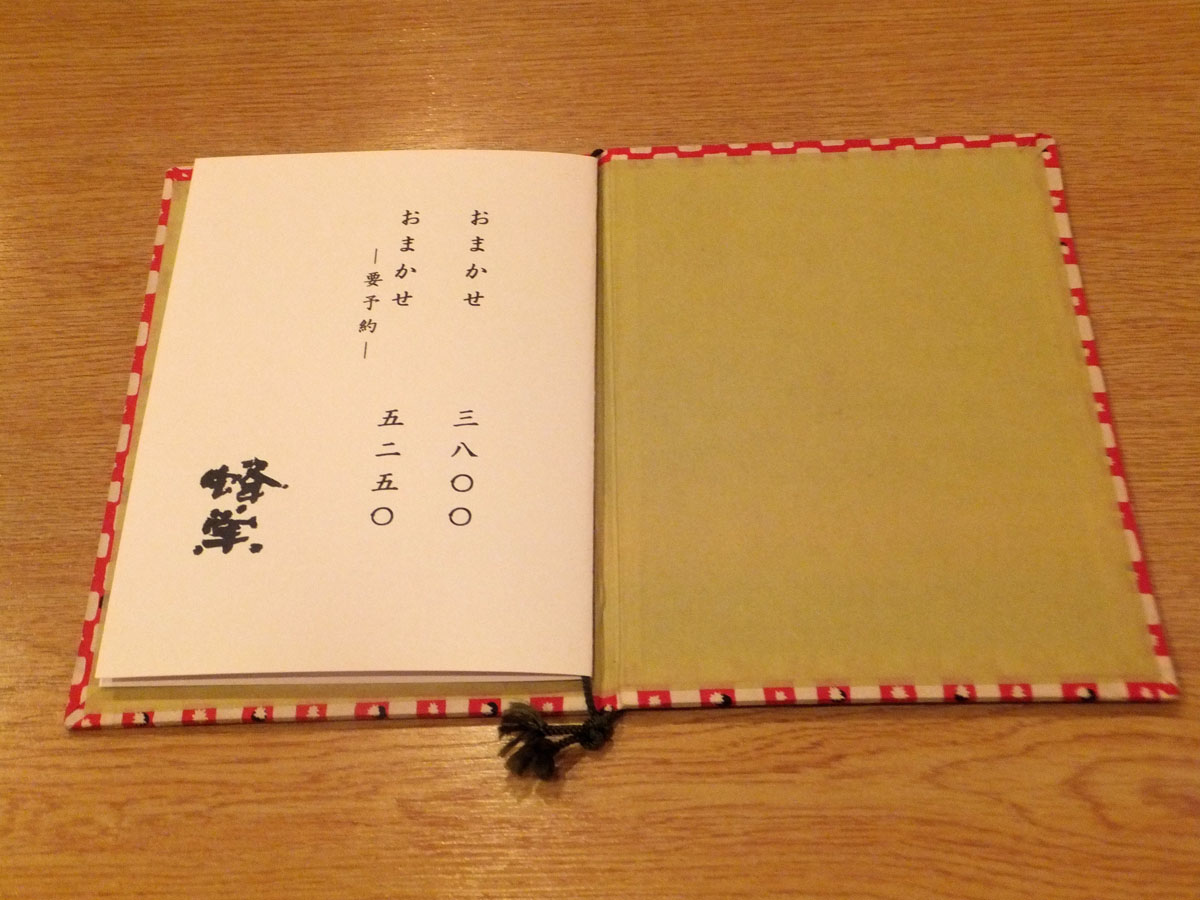 おまかせ 三八〇〇
おまかせ 五二五〇
―要予約―